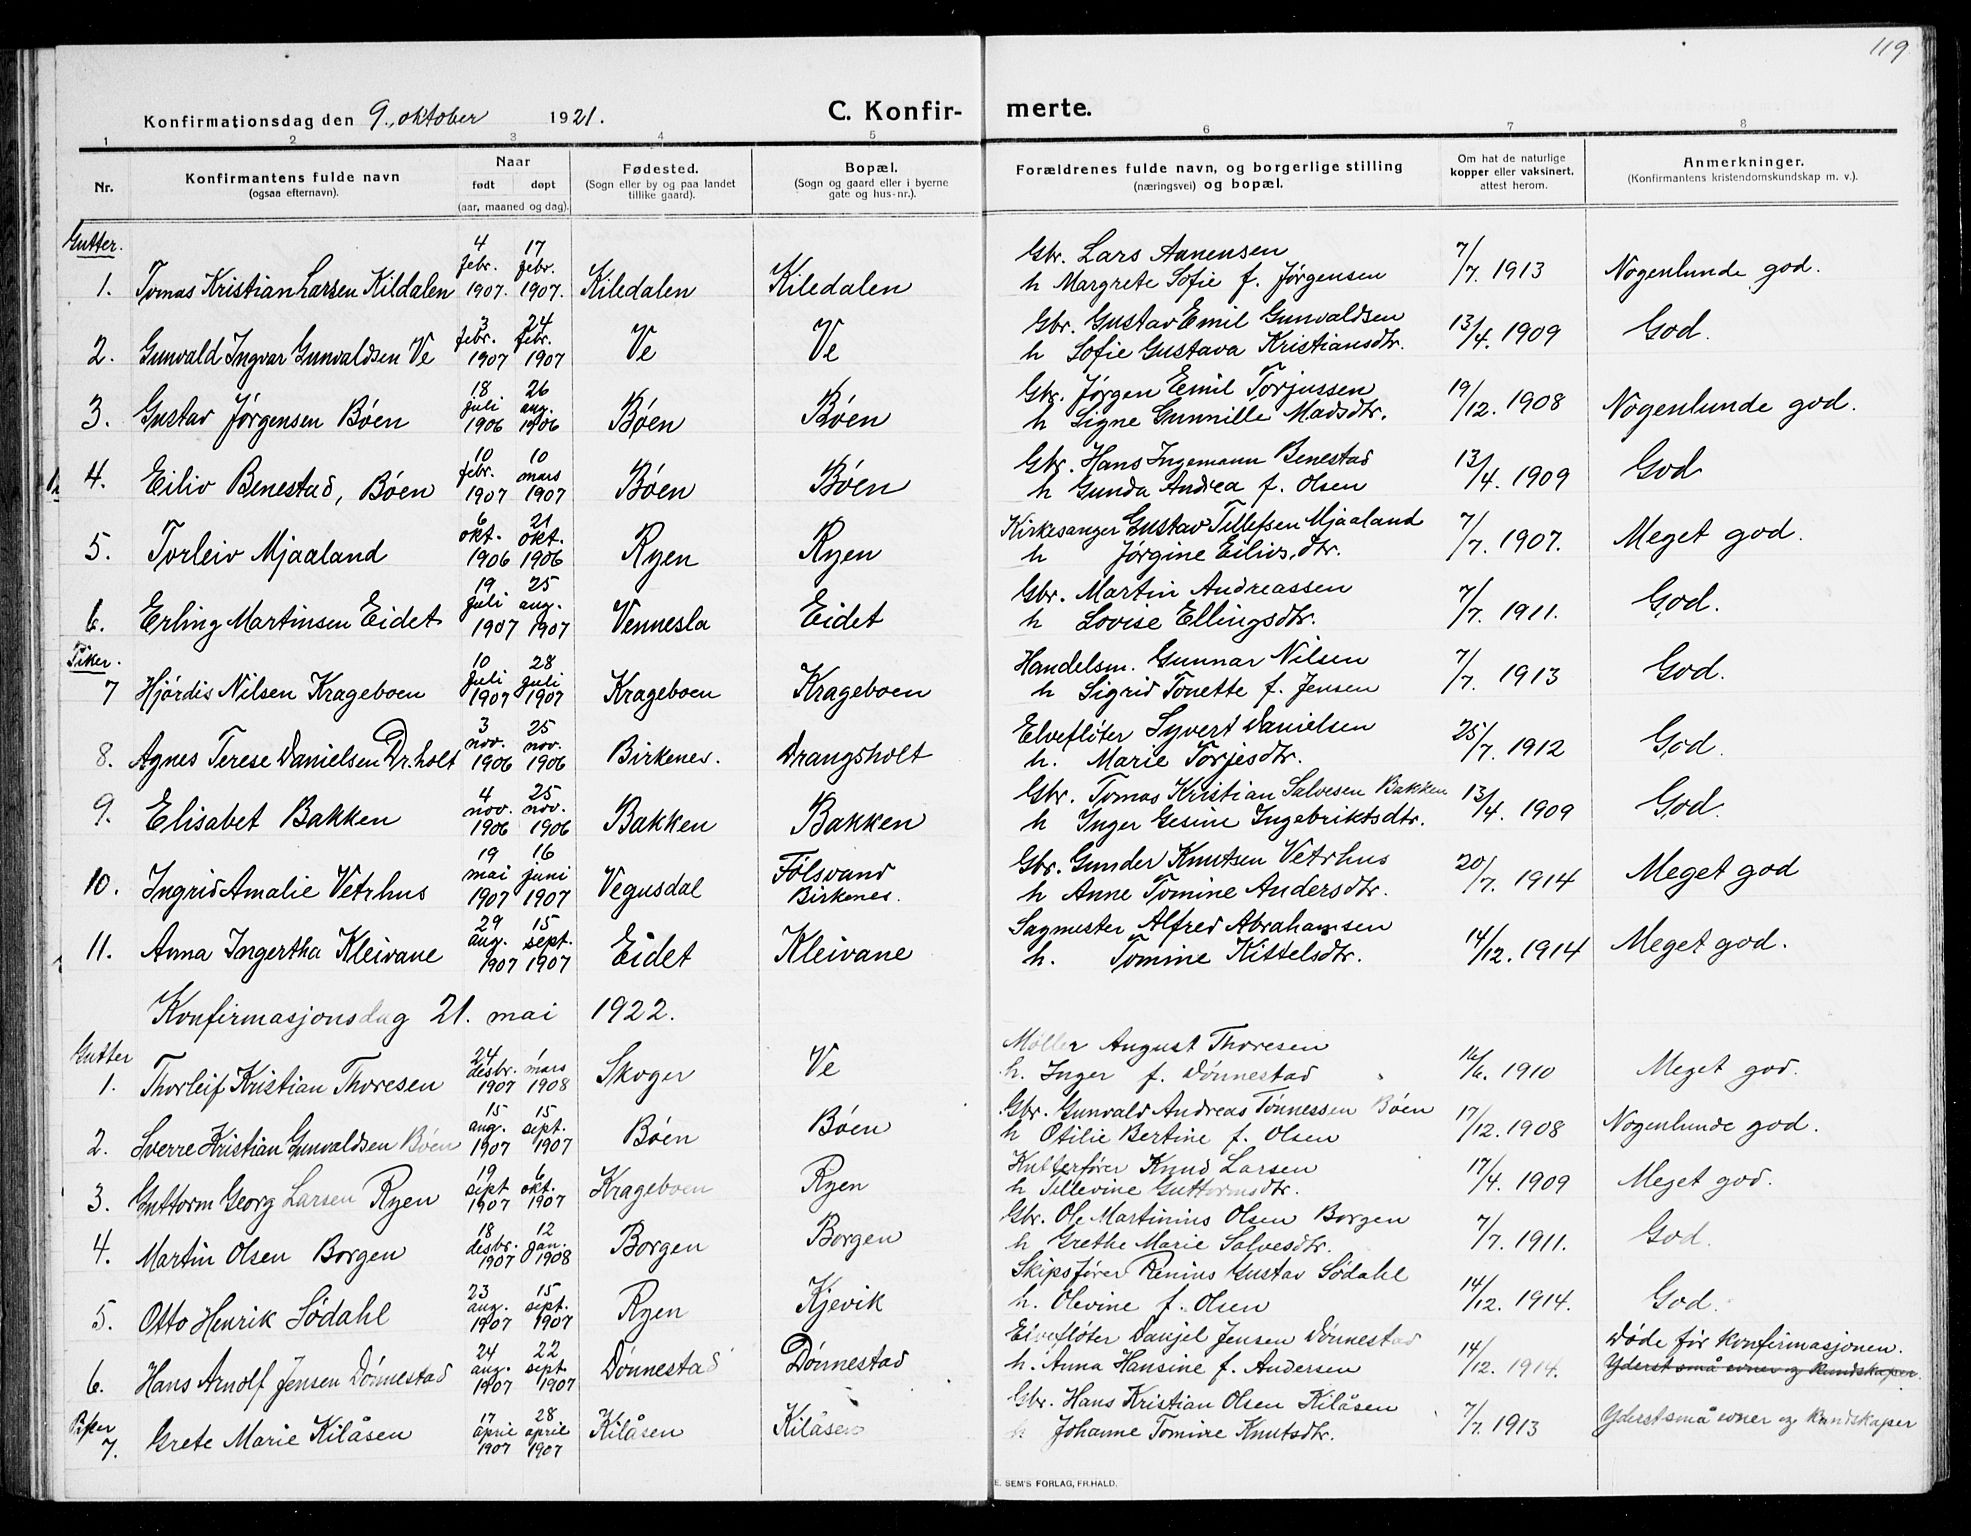 119
Konfirmationsdag den 9. oktober 1921. C. Konfirmerte.
1 2 3 4 5 6 7 8
Nr. Konfirmantens fulde navn (ogsaa efternavn). Naar født døpt (aar, maaned og dag). Fødested. (Sogn eller by og paa landet tillike gaard). Bopæl. (Sogn og gaard eller i byerne gate og hus-nr.). Forældrenes fulde navn, og borgerlige stilling (næringsvei) og bopæl. Om hat de naturlige kopper eller vaksinert, attest herom. Anmerkninger. (Konfirmantens kristendomskundskap m. v.).
Gutter.
1. Tomas Kristian Larsen Kildalen 4 febr. 1907. 17 febr. 1907. Kiledalen Kiledalen Gbr. Lars Aanensen h Margrete Sofie f. Jørgensen 7/7. 1913 Nogenlunde god.
2. Gunvald Ingvar Gunvaldsen Ve 3 febr. 1907 24 febr. 1907 Ve Ve Gbr. Gustav Emil Gunvaldsen h Sofie Gustava Kristiansdtr. 13/4. 1909 God.
3. Gustav Jørgensen Bøen 18 juli 1906 26 aug. 1906 Bøen Bøen Gbr. Jørgen Emil Torjussen h Signe Gunnille Madsdtr. 19/12. 1908 Nogenlunde god.
4. Eiliv Benestad, Bøen 10 febr. 1907 10 mars 1907 Bøen Bøen Gbr. Hans Ingemann Benestad h Gunda Andrea f. Olsen 13/4. 1909 God
5. Torleiv Mjaaland 6 okt. 1906 21 okt. 1906 Ryen Ryen Kirkesanger Gustav Tellefsen Mjaaland h Jørgine Eilivs.dtr. 7/7. 1907. Meget god.
6. Erling Martinsen Eidet 19 juli 1907 25 aug. 1907 Vennesla Eidet Gbr. Martin Andreassen h Lovise Ellingsdtr. 7/7. 1911. God.
Piker.
7 Hjørdis Nilsen Krageboen 10 juli 1907 28 juli 1907 Krageboen Krageboen Handelsm. Gunnar Nilsen h Sigrid Tonette f. Jensen 7/7. 1913 God.
8. Agnes Terese Danielsen Dr.holt 3 nov. 1906 25 nov. 1906 Birkenes. Drangsholt Elvefløter Syvert Danielsen h. Marie Torjesdtr. 25/7. 1912 God.
9. Elisabet Bakken 4 nov. 1906 25 nov. 1906 Bakken Bakken Gbr. Tomas Kristian Salvesen Bakken h Inger Gesine Ingebriktsdtr. 13/4. 1909 God.
10. Ingrid Amalie Vetrhus 19 mai 1907 16 juni 1907 Vegusdal Følsvand Birkenes. Gbr. Gunder Knutsen Vetrhus h Anne Tomine Andersdtr. 20/7. 1914 Meget god
11. Anna Ingertha Kleivane 29 aug. 1907 15 sept. 1907 Eidet Kleivane Sagmester Alfred Abrahamsen h. Tomine Kittelsdtr. 14/12. 1914 Meget god.
Konfirmasjonsdag 21. mai 1922.
Gutter
1. Thorleif Kristian Thoresen 24 desbr. 1907 1 mars 1908 Skoger Ve Møller August Thoresen h. Inger f. Dønnestad 16/6. 1910 Meget god.
2. Sverre Kristian Gunvaldsen Bøen 15 aug. 1907 15 sept. 1907 Bøen Bøen Gbr. Gunvald Andreas Tønnessen Bøen h Otilie Bertine f. Olsen 17/12. 1908 Nogenlunde god.
3. Guttorm Georg Larsen Ryen 19 sept 1907 6 okt. 1907 Krageboen Ryen Kutterfører Knud Larsen h Tellevine Guttormsdtr. 17/4. 1909 Meget god.
4. Martin Olsen Borgen 18 desbr. 1907 12 jan. 1908 Borgen Borgen Gbr. Ole Martinius Olsen Borgen h Grethe Marie Salvesdtr. 7/7. 1911. God.
5. Otto Henrik Sødahl 23 aug. 1907 15 sept. 1907 Ryen Kjevik Skipsfører Renius Gustav Sødahl h. Olevine f. Olsen 14/12. 1914. God.
6. Hans Arnolf Jensen Dønnestad 24 aug. 1907 22 sept. 1907 Dønnestad Dønnestad Elvefløter Danjel Jensen Dønnestad h. Anna Hansine f. Andersen 14/12. 1914. Døde før konfirmasjonen. Yderst små evner og kundskaper.
Piker
7. Grete Marie Kilåsen 17 april 1907 28 april 1907 Kilåsen Kilåsen Gbr. Hans Kristian Olsen Kilåsen h Johanne Tomine Knutsdtr. 7/7. 1913 Yderst små evner og kundskaper
E. SEM'S FORLAG, FR.HALD.